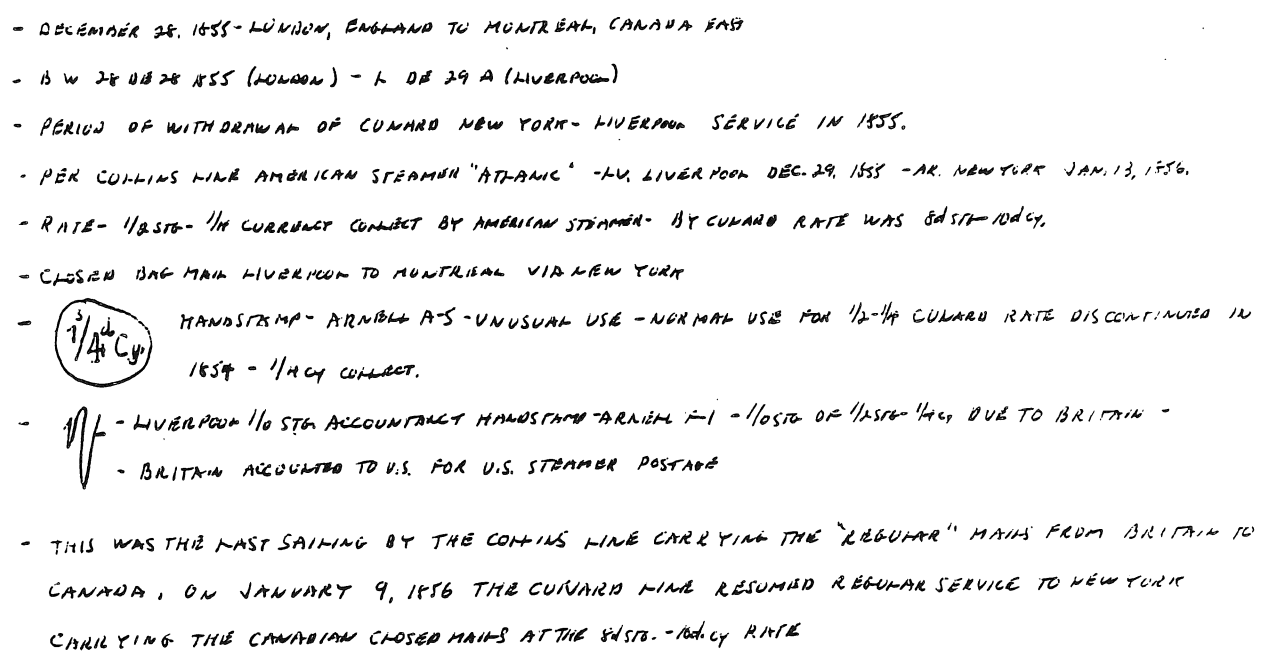 - DECEMBER 28, 1855 - LONDON, ENGLAND TO MONTREAL, CANADA EAST
- B W 28 DE 28 1855 (LONDON) - L DE 29 A (LIVERPOOL)
- PERIOD OF WITHDRAWAL OF CUNARD NEW YORK - LIVERPOOL SERVICE IN 1855.
- PER COLLINS LINE AMERICAN STEAMER "ATLANTIC" - LV. LIVERPOOL DEC. 29, 1855 - AR. NEW YORK JAN. 13, 1856.
- RATE - 1/2 STG - 1/4 CURRENCY COLLECT BY AMERICAN STEAMER - BY CUNARD RATE WAS 8d STG - 10d CY.
- CLOSED BAG MAIL LIVERPOOL TO MONTREAL VIA NEW YORK
- 1s/4d Cy. HANDSTAMP - ARNELL A-5 - UNUSUAL USE - NORMAL USE FOR 1/2 - 1/4 CUNARD RATE DISCONTINUED IN
1854 - 1/4 CY COLLECT.
- - LIVERPOOL 1/0 STG. ACCOUNTANCY HANDSTAMP - ARNELL F-1 - 1/0 STG OF 1/2 STG - 1/4 CY, DUE TO BRITAIN -
- BRITAIN ACCOUNTED TO U.S. FOR U.S. STEAMER POSTAGE
- THIS WAS THE LAST SAILING BY THE COLLINS LINE CARRYING THE "REGULAR" MAILS FROM BRITAIN TO
CANADA. ON JANUARY 9, 1856 THE CUNARD LINE RESUMED REGULAR SERVICE TO NEW YORK
CARRYING THE CANADIAN CLOSED MAILS AT THE 8d STG. - 10d. CY RATE